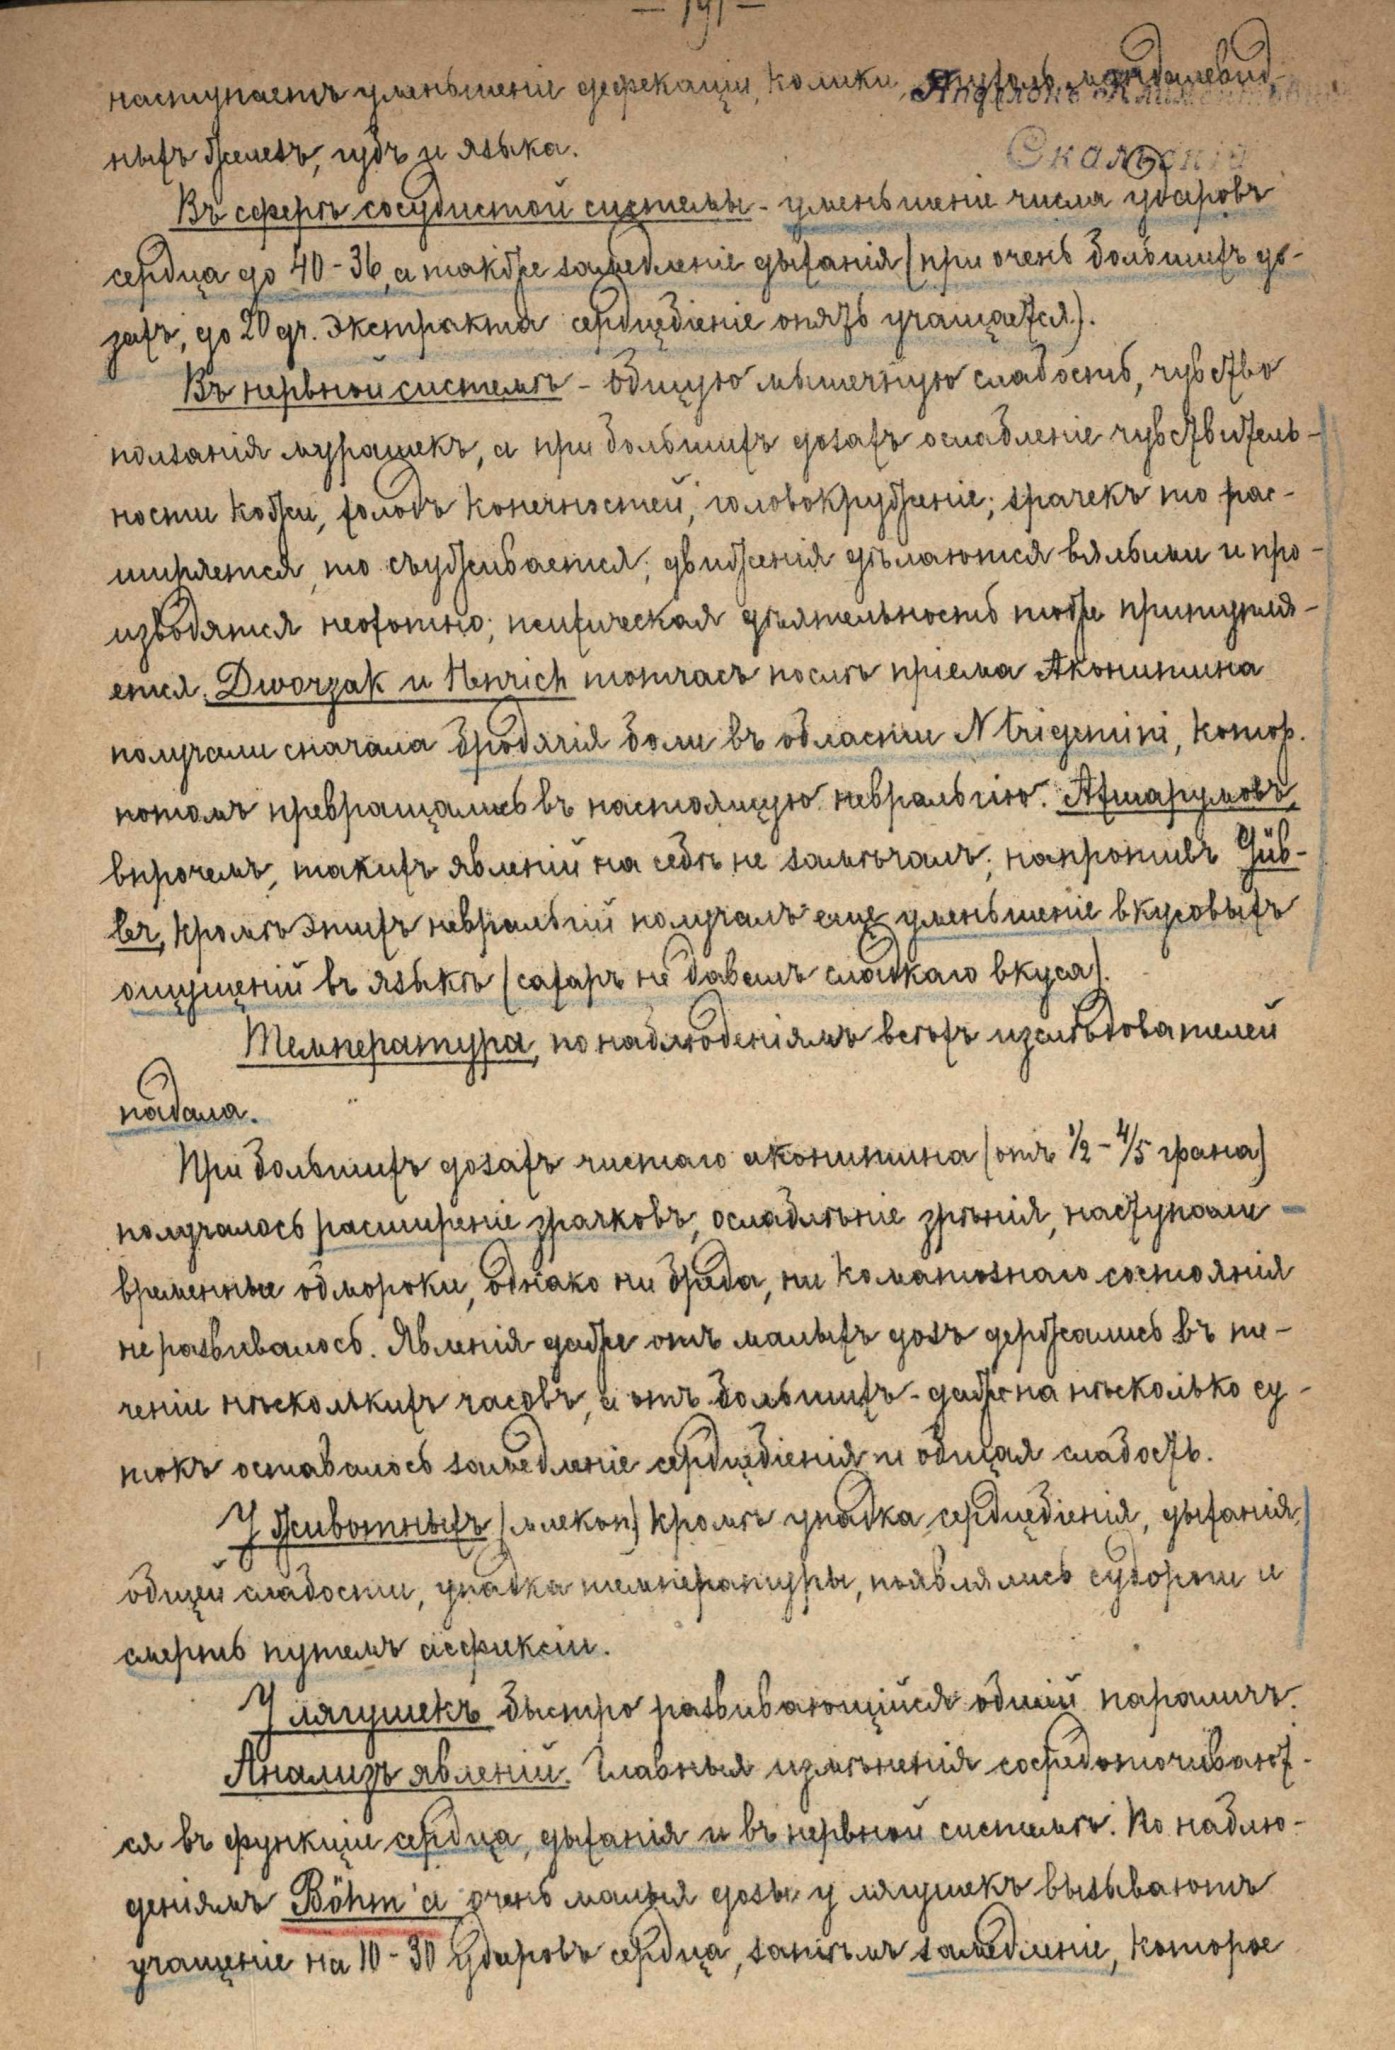 — 191 —
наступаетъ уменьшеніе дефекаціи, колики, опухоль миндалевид-
ныхъ железъ, губъ и языка.
Скальскій
Въ сферѣ сосудистой системы - уменьшеніе числа ударовъ
сердца до 40-36, а также замедленіе дыханія (при очень большихъ до-
захъ, до 20 gr. экстракта сердцебіеніе опять учащается).
Въ нервной системѣ - общую мышечную слабость, чувство
ползанія мурашекъ, а при большихъ дозахъ ослабленіе чувствитель-
ности кожи, холодъ конечностей, головокруженіе; зрачекъ то рас-
ширяется, то съуживается; движенія дѣлаются вялыми и про-
изводятся неохотно; психическая дѣятельность тоже притупля-
ется. Dworzak и Henrich тотчасъ послѣ пріема Аконитина
получали сначала бродячія боли въ области N trigemini, котор.
потомъ превращались въ настоящую невральгію. Ахшарумовъ,
впрочемъ, такихъ явленій на себѣ не замѣчалъ; напротивъ Güb-
ler, кромѣ этихъ невральгій получалъ еще уменьшеніе вкусовыхъ
ощущеній въ языкѣ (сахаръ не давалъ сладкаго вкуса).
Температура, по наблюденіямъ всѣхъ изслѣдователей
падала.
При большихъ дозахъ чистаго аконитина (отъ 1/2 - 4/5 грана)
получалось расширеніе зрачковъ, ослаблѣніе зрѣнія, наступали
временные обмороки, однако ни бреда, ни коматознаго состоянія
не развивалось. Явленія даже отъ малыхъ дозъ держались въ те-
ченіи нѣсколькихъ часовъ, а отъ большихъ - даже на нѣсколько су-
токъ оставалось замедленіе сердцебіенія и общая слабость.
У животныхъ (млекоп.) кромѣ упадка сердцебіенія, дыханія,
общей слабости, упадка температуры, появлялись судороги и
смерть путемъ асфиксіи.
У лягушекъ быстро развивающійся общій параличъ.
Анализъ явленій. Главныя измѣненія сосредоточивают-
ся въ функціи сердца, дыханія и въ нервной системѣ. По наблю-
деніямъ Böhm'а очень малыя дозы у лягушекъ вызываютъ
учащеніе на 10-30 ударовъ сердца, затѣмъ замедленіе, которое